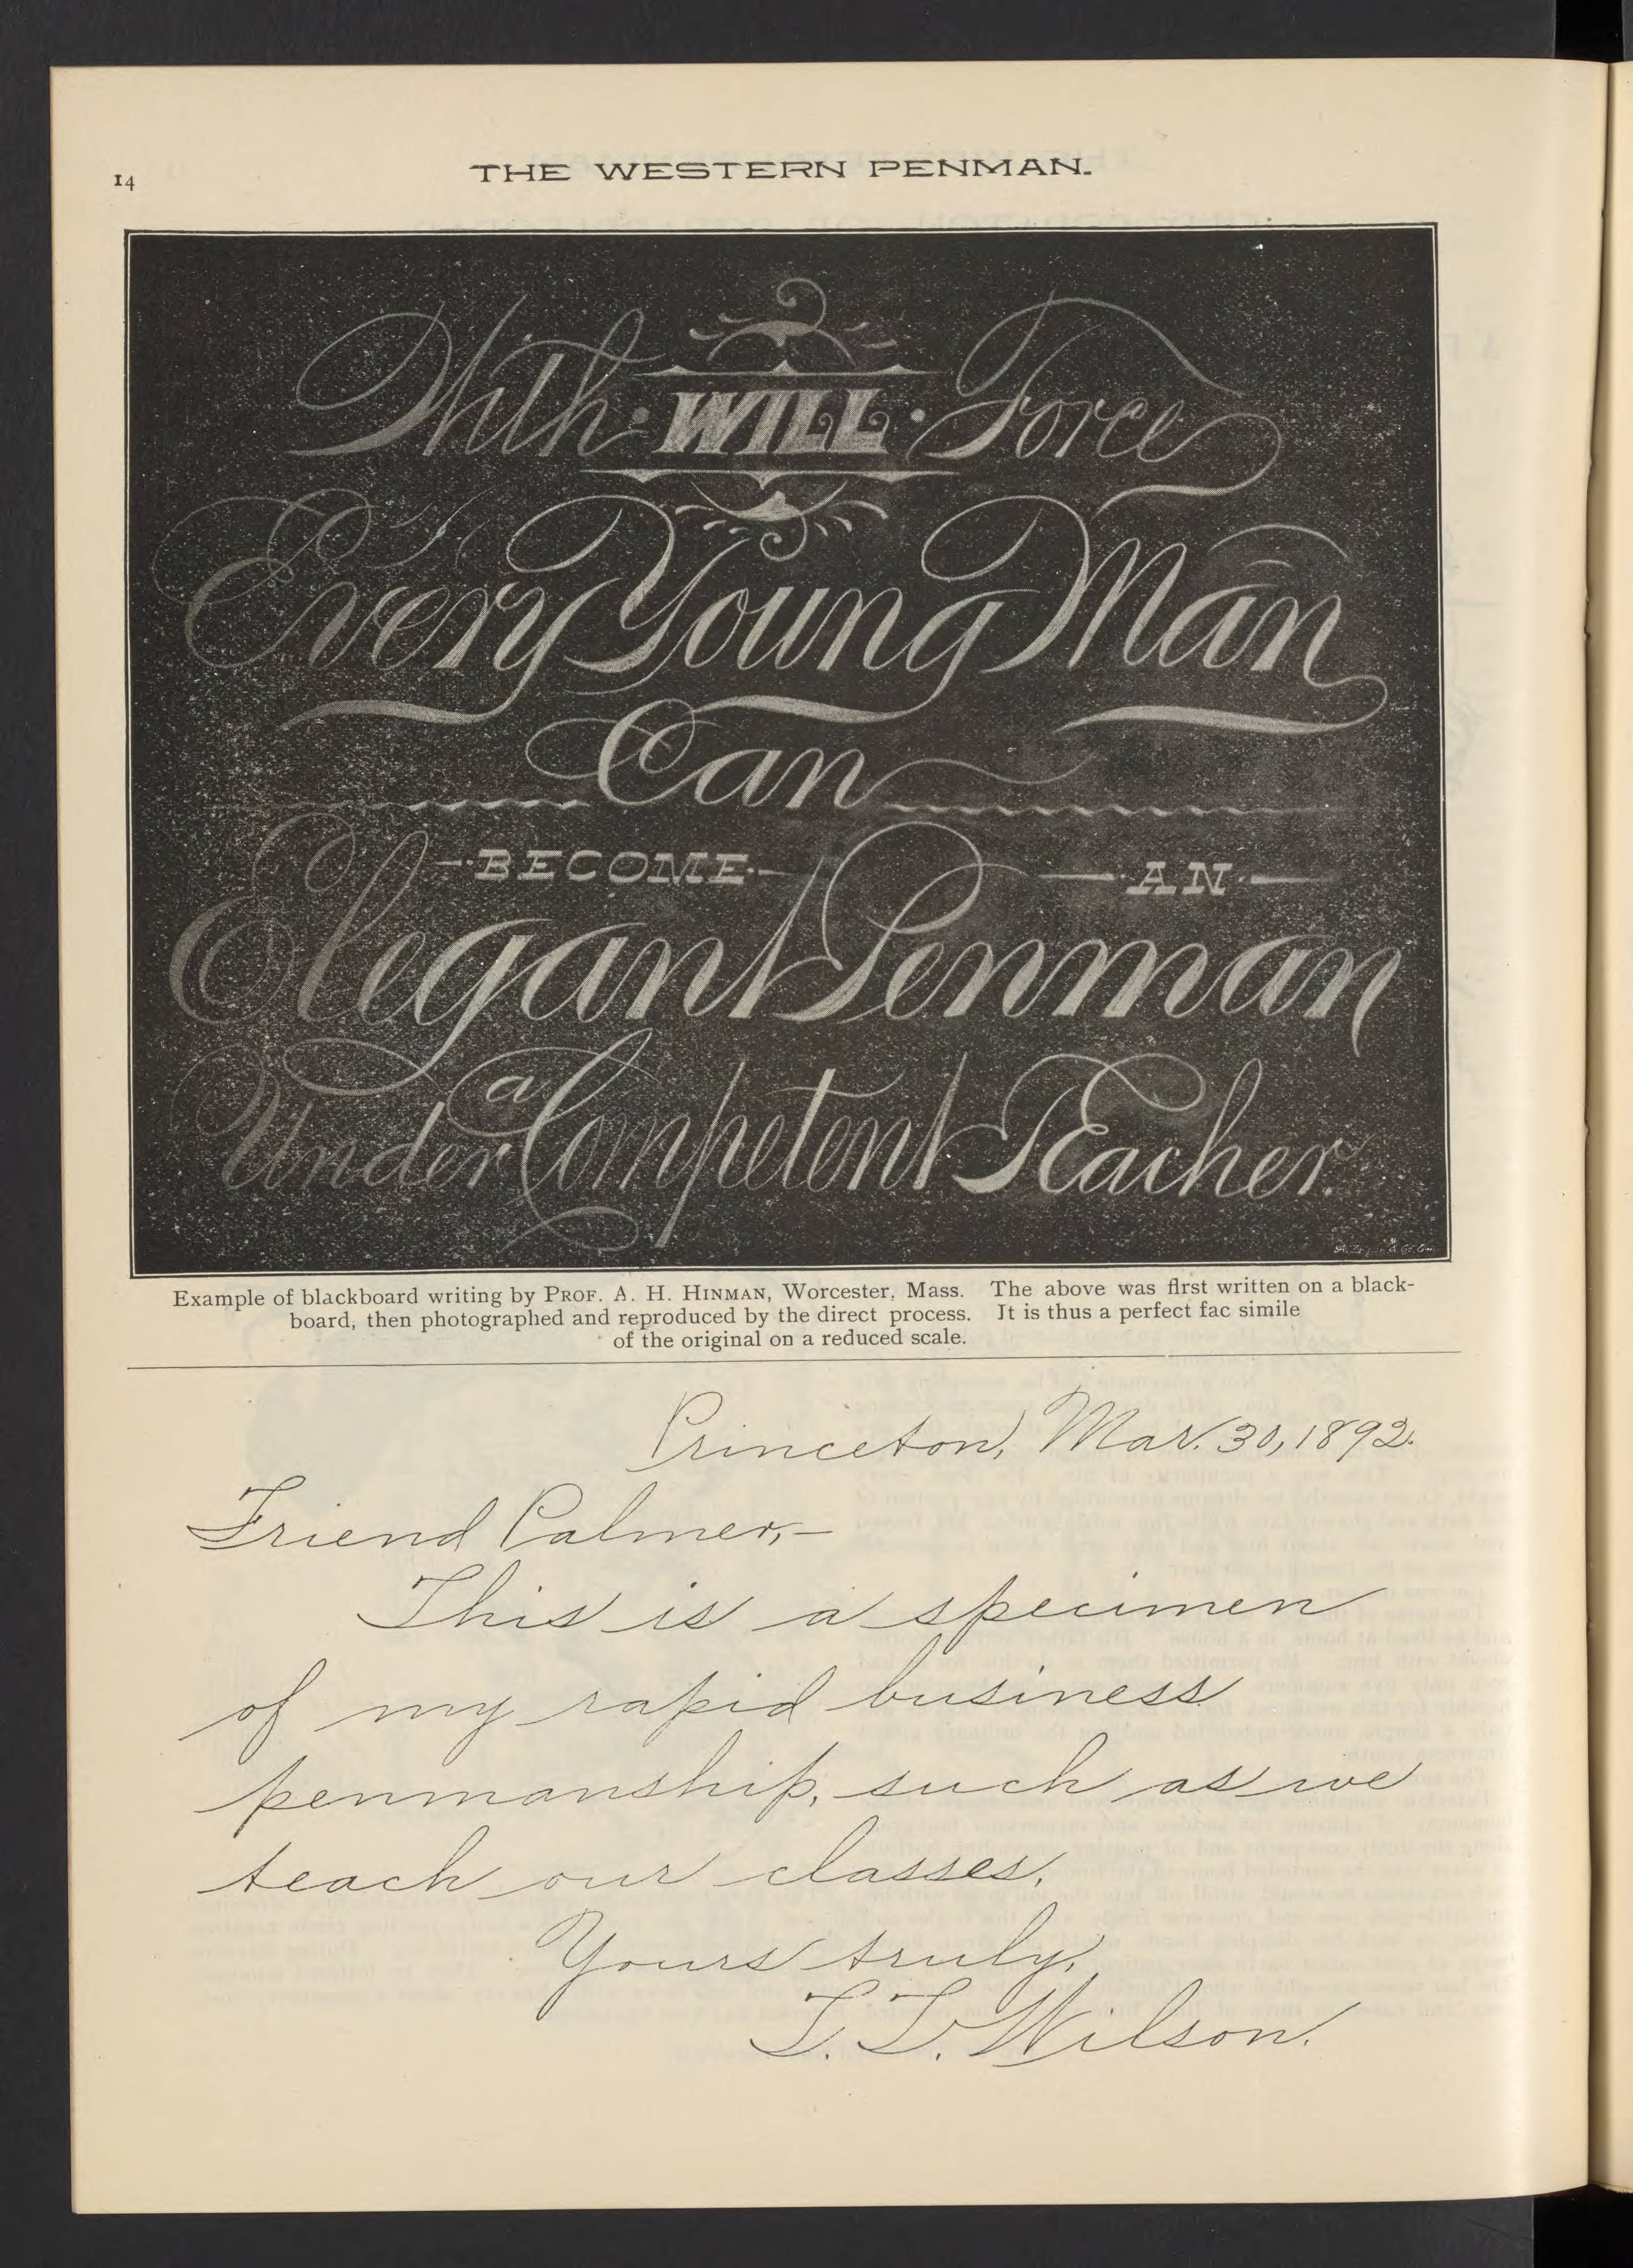 14
THE WESTERN PENMAN.
With · WILL · Force
Every Young Man
Can
BECOME AN
Elegant Penman
Under a Competent Teacher.
Example of blackboard writing by PROF. A. H. HINMAN, Worcester, Mass. The above was first written on a black-
board, then photographed and reproduced by the direct process. It is thus a perfect fac simile
of the original on a reduced scale.
Princeton, Mar. 30, 1892.
Friend Palmer,—
This is a specimen
of my rapid business
penmanship, such as we
teach our classes.
Yours truly,
Wilson.